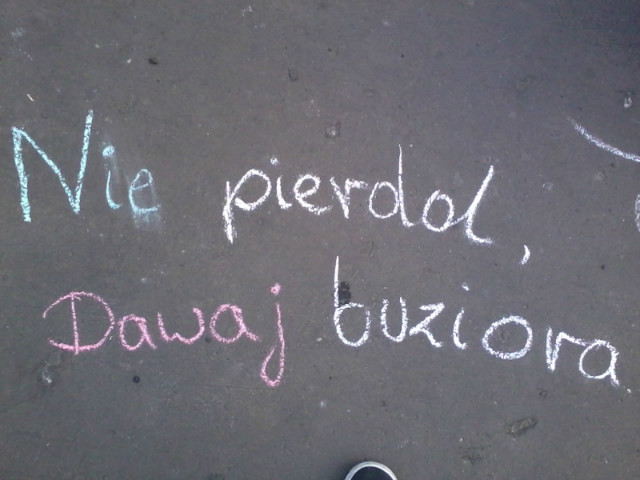 Nie pierdol,
Dawaj buziora